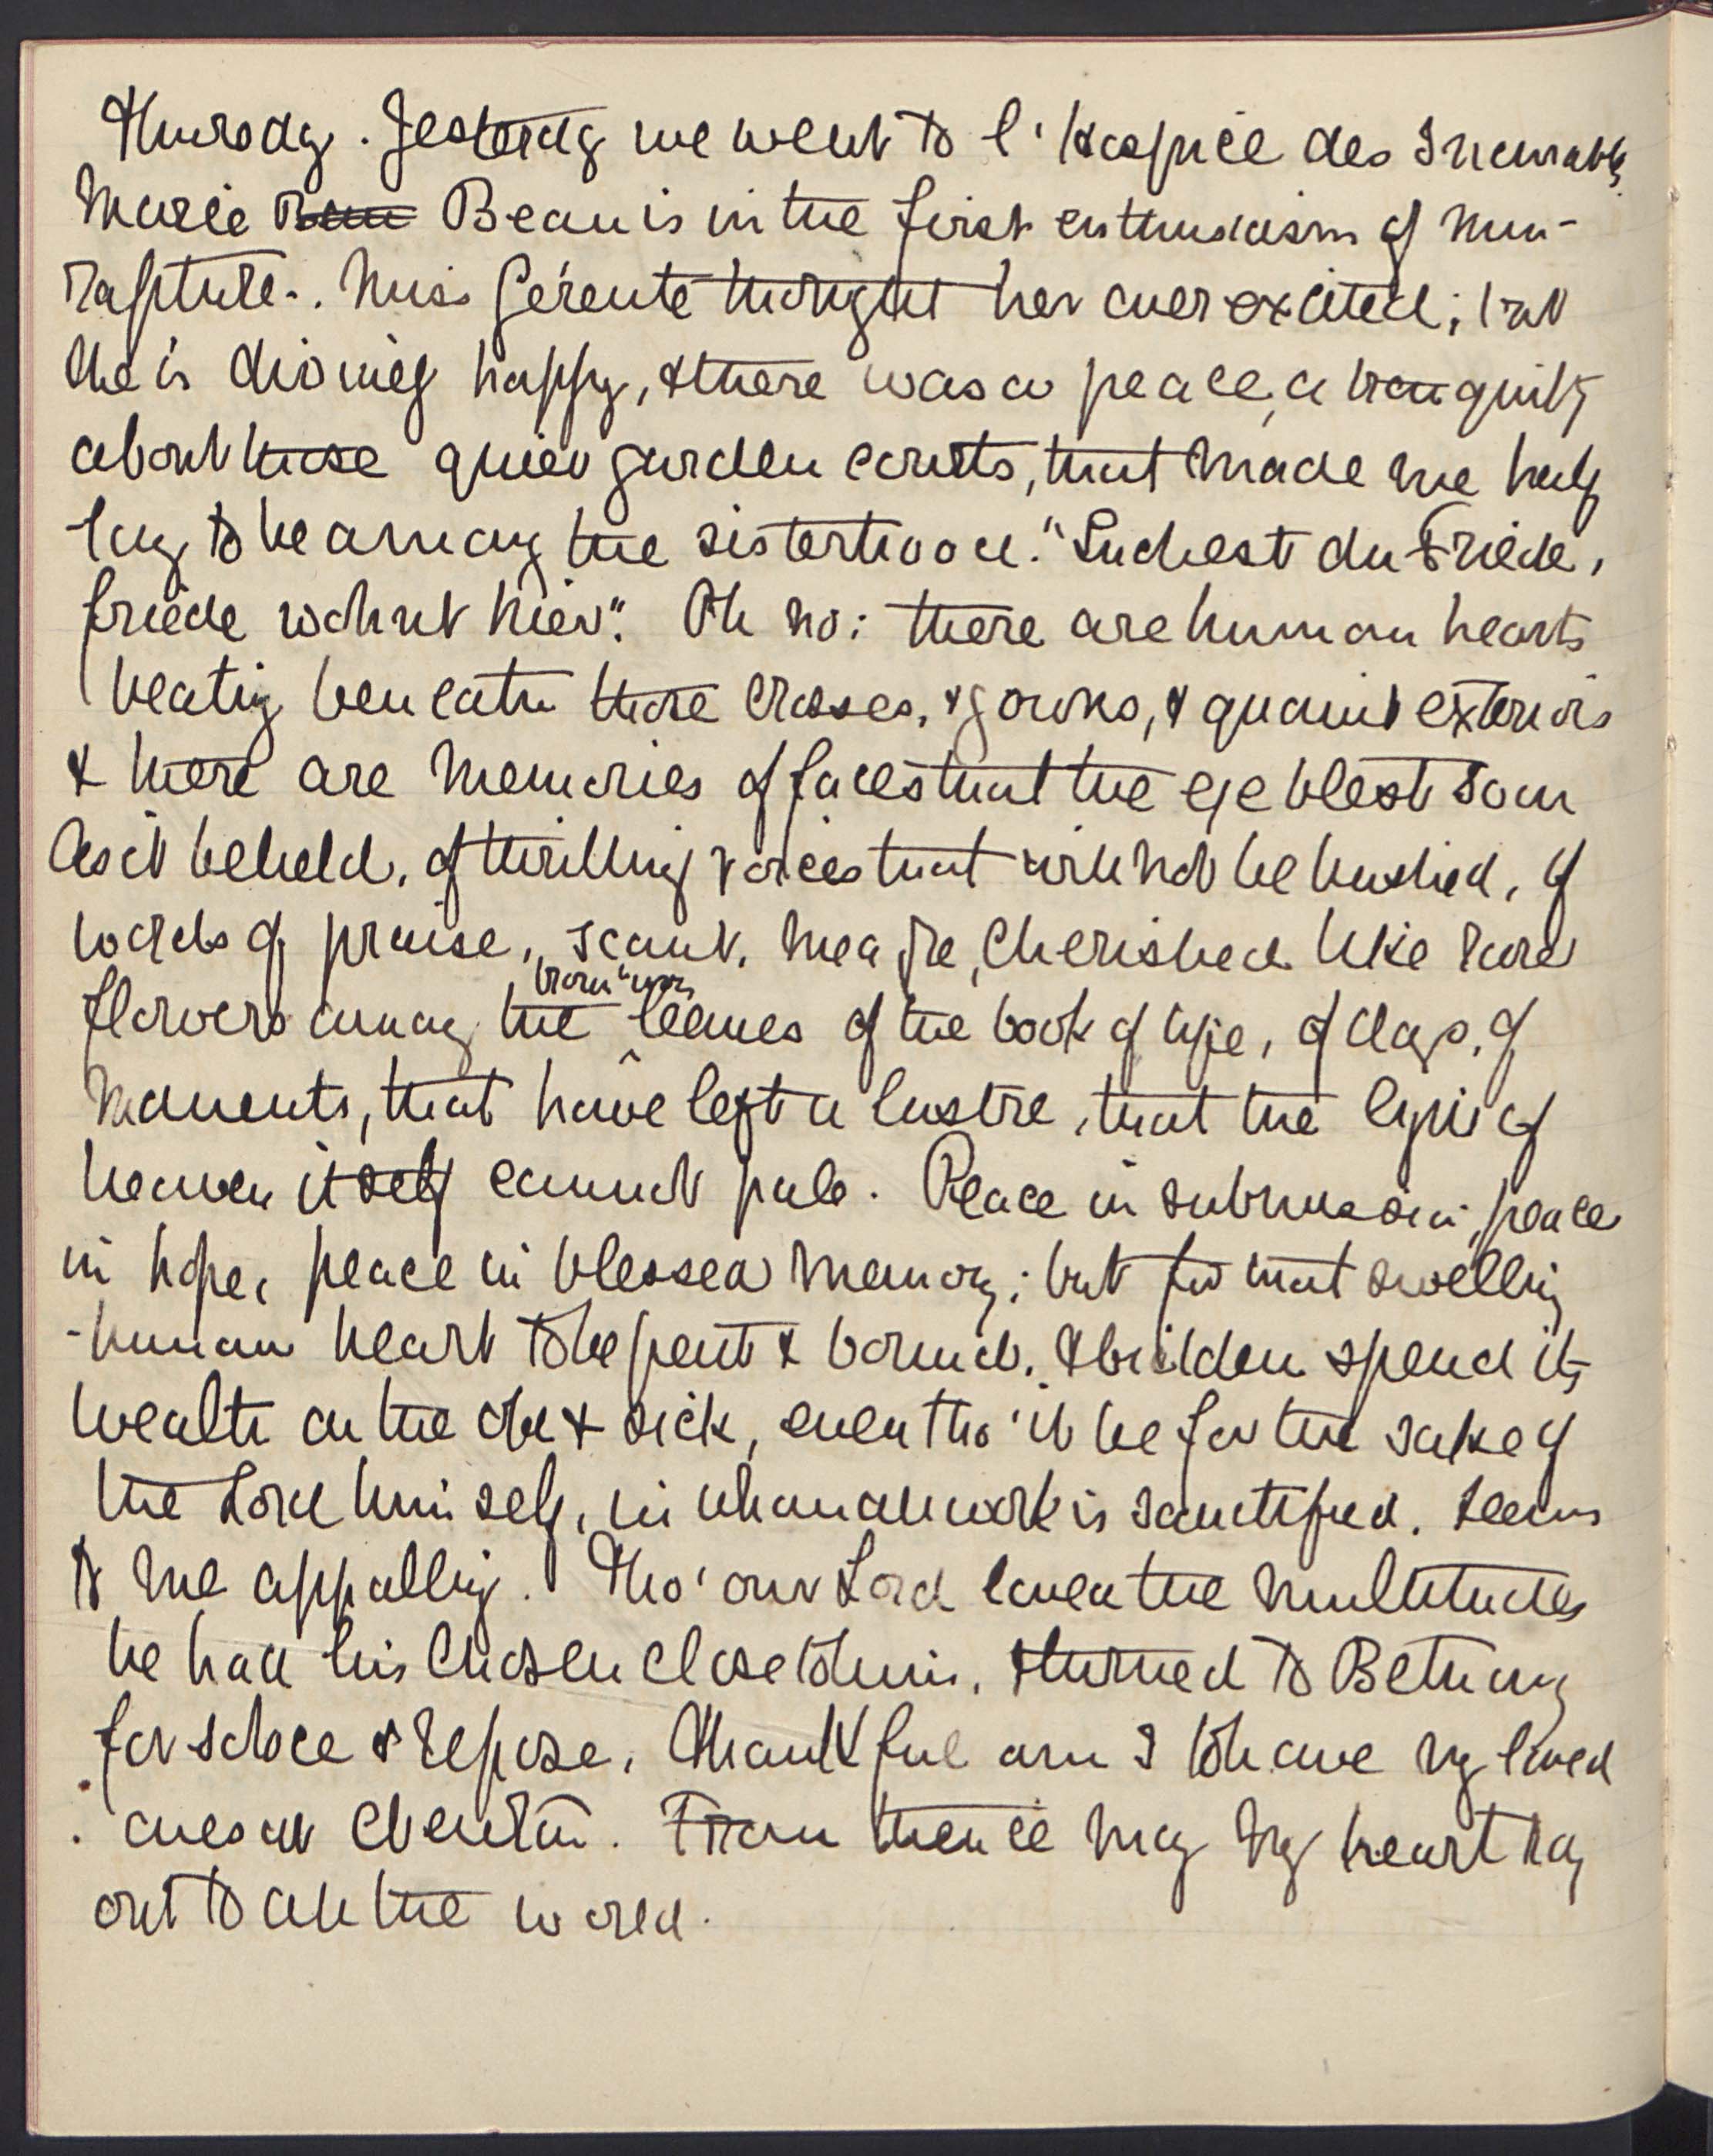 Thursday. Yesterday we went to l'Hospice des Incurables
Marie Beau is in the first enthusiasm of nun-
rapture. Miss Gérente thought her over excited; but
she is divinely happy, & there was a peace, a tranquility
about those quiet garden courts, that made me half
long to be among the sisterhood. "Suchest du Friede,
friede wohnt hier". Oh no: there are human hearts
beating beneath those crosses, & gowns, & quaint exteriors
& there are memories of faces that the eye blest
as it beheld, of thrilling voices that will not be hushed, of
words of praise, scant, meagre, cherished like rare
flowers among the well worn leaves of the book of life, of days, of
moments, that have left a lustre, that the light of
heaven itself cannot pale. Peace in submission, peace
in hope, peace in blessed memory; but for that swelling
human heart to be pent & bound, & bidden spend its
wealth on the old & sick, even tho' it be for the sake of
the Lord himself, in whom all work is sanctified, seems
to me appalling. Tho' our Lord loved the multitudes
he had his chosen close to him, & turned to Bethany
for solace & repose. Thankful am I to have my loved
ones at Clventon. From thence may my heart ray
out to all the world.